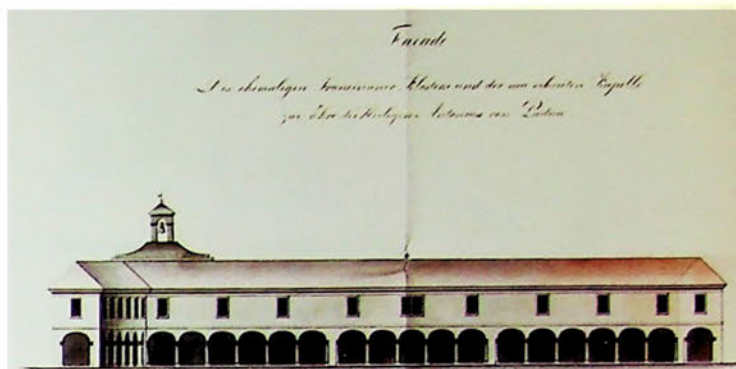 Facade
Des ehemaligen Franciscaner Klosters und der neu erbauten Kapelle
zur Ehre des Heiligen Antonius von Padua